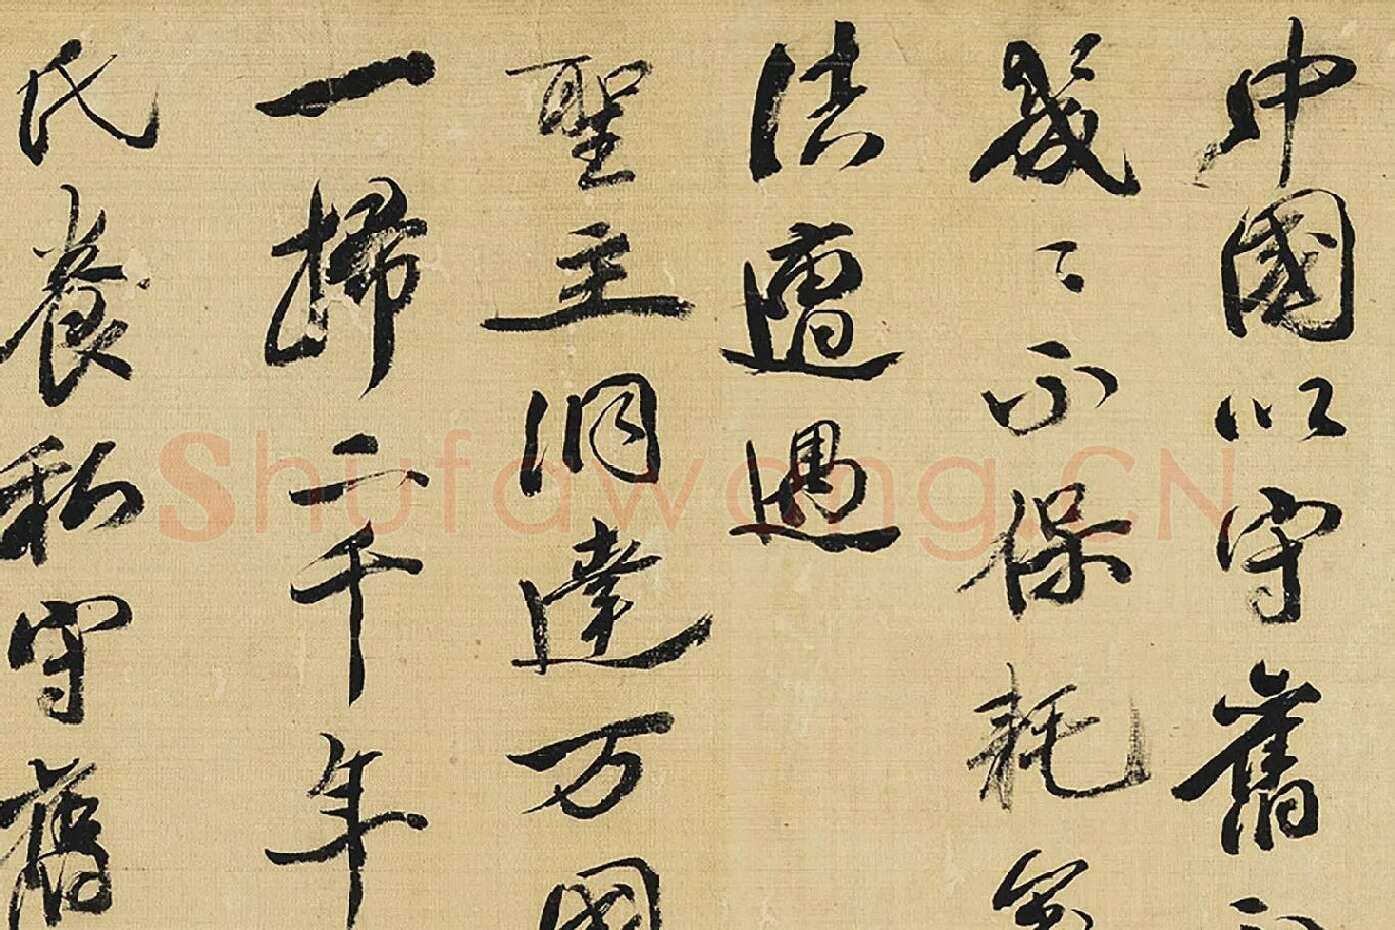 中國以守舊
幾〻不保耗矣
法遭遇
聖主洞達万國
一掃二千年
氏養私守舊
Shufawang.CN